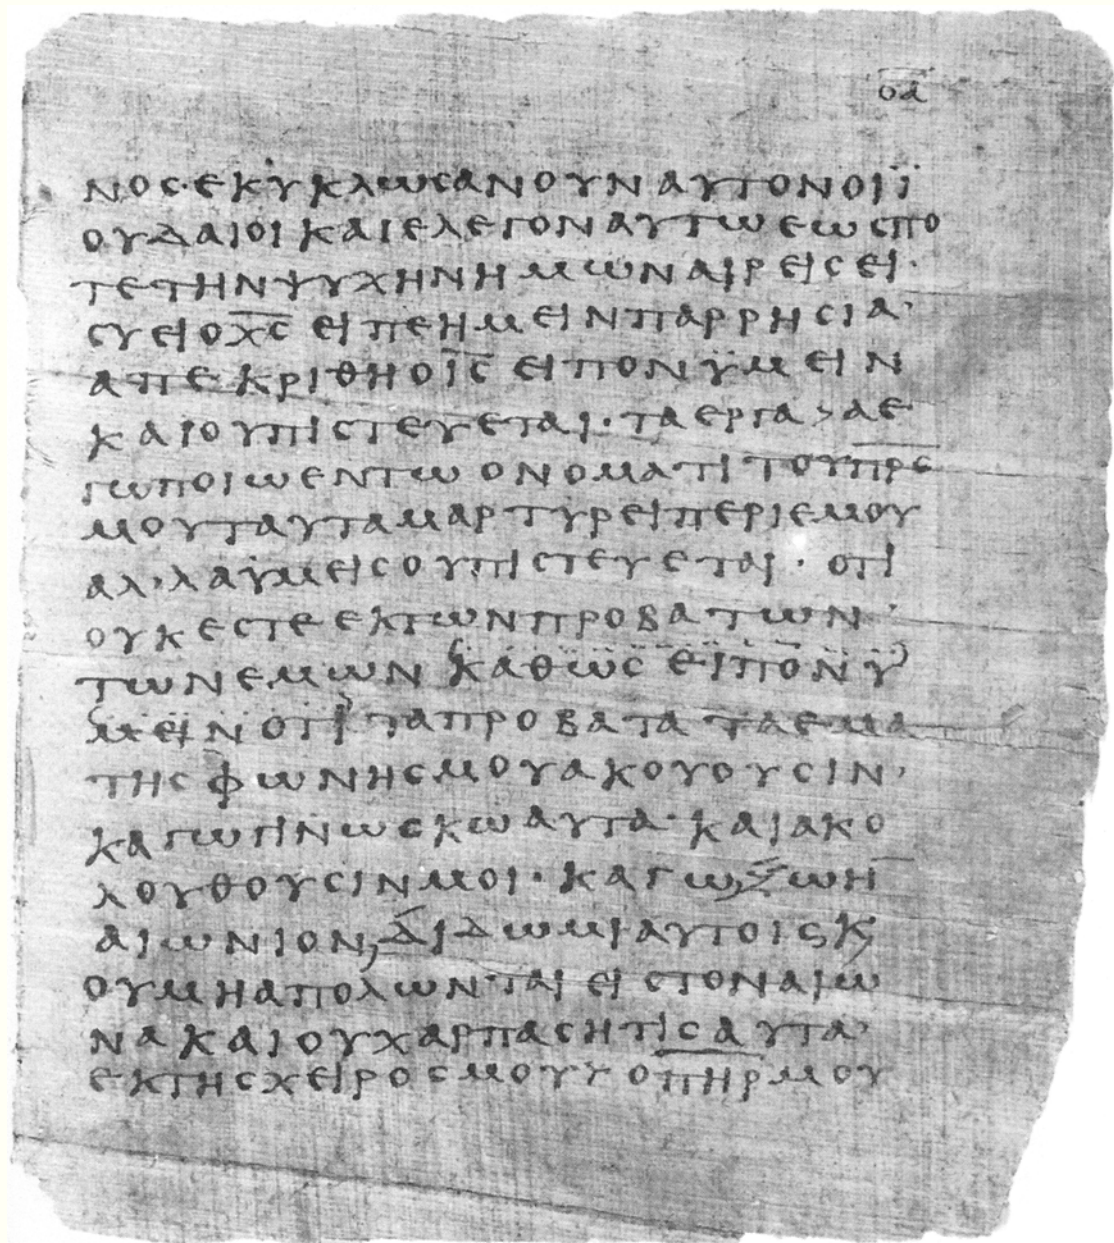 ο̅α̅
νοσ·εκυκλωσανουναυτονοιϊ
ουδαιοικαιελεγοναυτωεωσπο
τετηνψυχηνημωναιρεισει·
συειοχ̅σ̅ειπεημεινπαρρησια·
απεκριθηοι̅σ̅ειπονϋμειν
καιουπιστευεται·ταεργα›αε
γωποιωεντωονοματιτουπ̅ρ̅σ̅
μουταυταμαρτυρειπεριεμου
αλ’λαϋμεισουπιστευεται·οτι
ουκεστεεκτωνπροβατων·
τωνεμων(καθωσειπονϋ)
(μεινοτι)ταπροβαταταεμα
τησφωνησμουακουουσιν·
καγωγινωσκωαυτα·καιακο
λουθουσινμοι·καγωζωη̅
αιωνιονδιδωμιαυτοισκ,
ουμηαπολων·ταιειστοναιω
νακαιουχαρπασητισαυτα·
εκτησχειροσμουυοπ̅η̅ρ̅μου